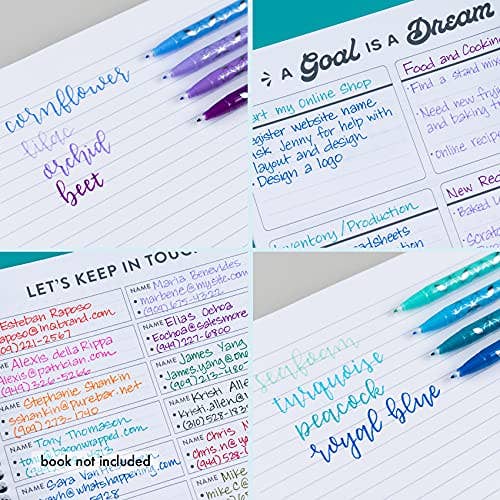 cornflower
lilac
orchid
beet
A Goal IS A Dream
Start my Online Shop
Register website name
Ask Jenny for help with
layout and design
• Design a logo
Inventory/Production
Food and Cooking
• Find a stand mix
• Need new frying
and baking
• Online recip
New Rec
• Baked
• Scratch
LET'S KEEP IN TOUCH
Esteban Raposo
raposo@inqbrand.com
(909) 221-2567
NAME Alexis della Rippa
alexis@patrician.com
(949) 326-5266
NAME Stephanie Shankin
sshankin@purebar.net
(909) 273-1740
NAME Tony Thomasen
tony@baconwrapped.com
NAME Sara
@whatshappening.com
NAME Maria Benevides
marben@mysite.com
(909) 675-4322
NAME Elias Ochoa
Eochoa@salesmore
(949) 227-6800
NAME James Yang
james.yang@one
(213)
NAME Kristi Allen
Kristi.allen@
(310) 528-183
NAME Chris N
chris.n@
(949) 528-
NAME Mike
mike.c@
book not included
seafoam
turquoise
peacock
royal blue